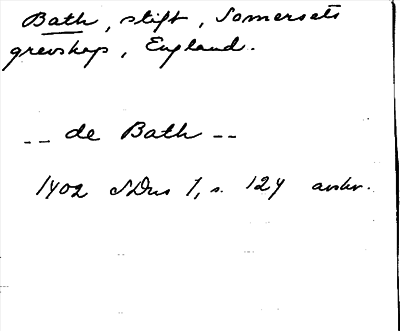 Bath, stift, Somersets
grevskap, England.
-- de Bath --
1402 SDns 1, s. 124 avskr.